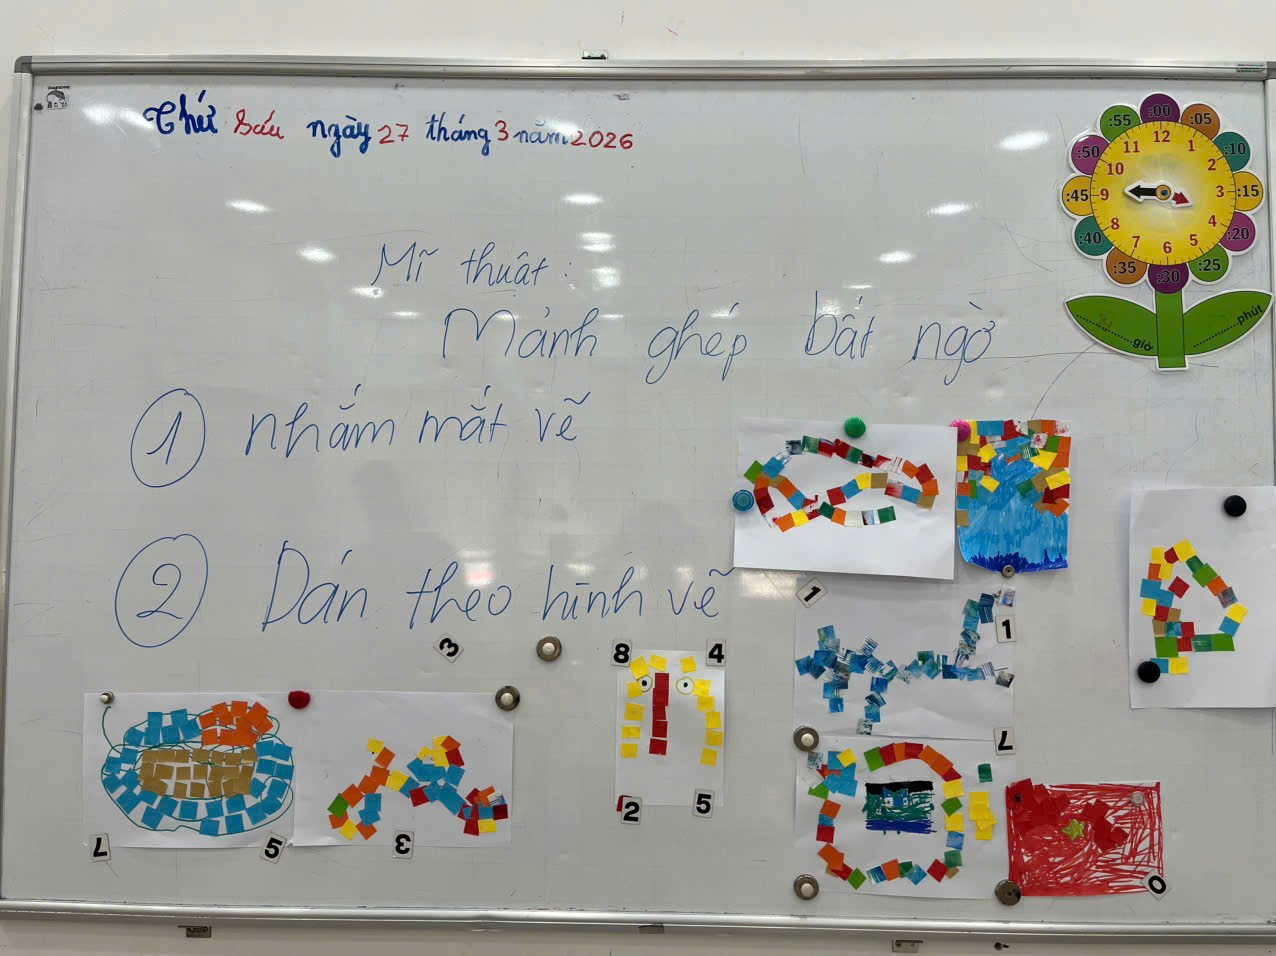 Thứ Sáu ngày 27 tháng 3 năm 2026
Mĩ thuật:
Mảnh ghép bất ngờ
1 nhắm mắt vẽ
2 Dán theo hình vẽ
:00
:05
:10
:15
:20
:25
:30
:35
:40
:45
:50
:55
12
1
2
3
4
5
6
7
8
9
10
11
giờ
phút
1
1
3
8
4
7
2
5
7
5
3
0